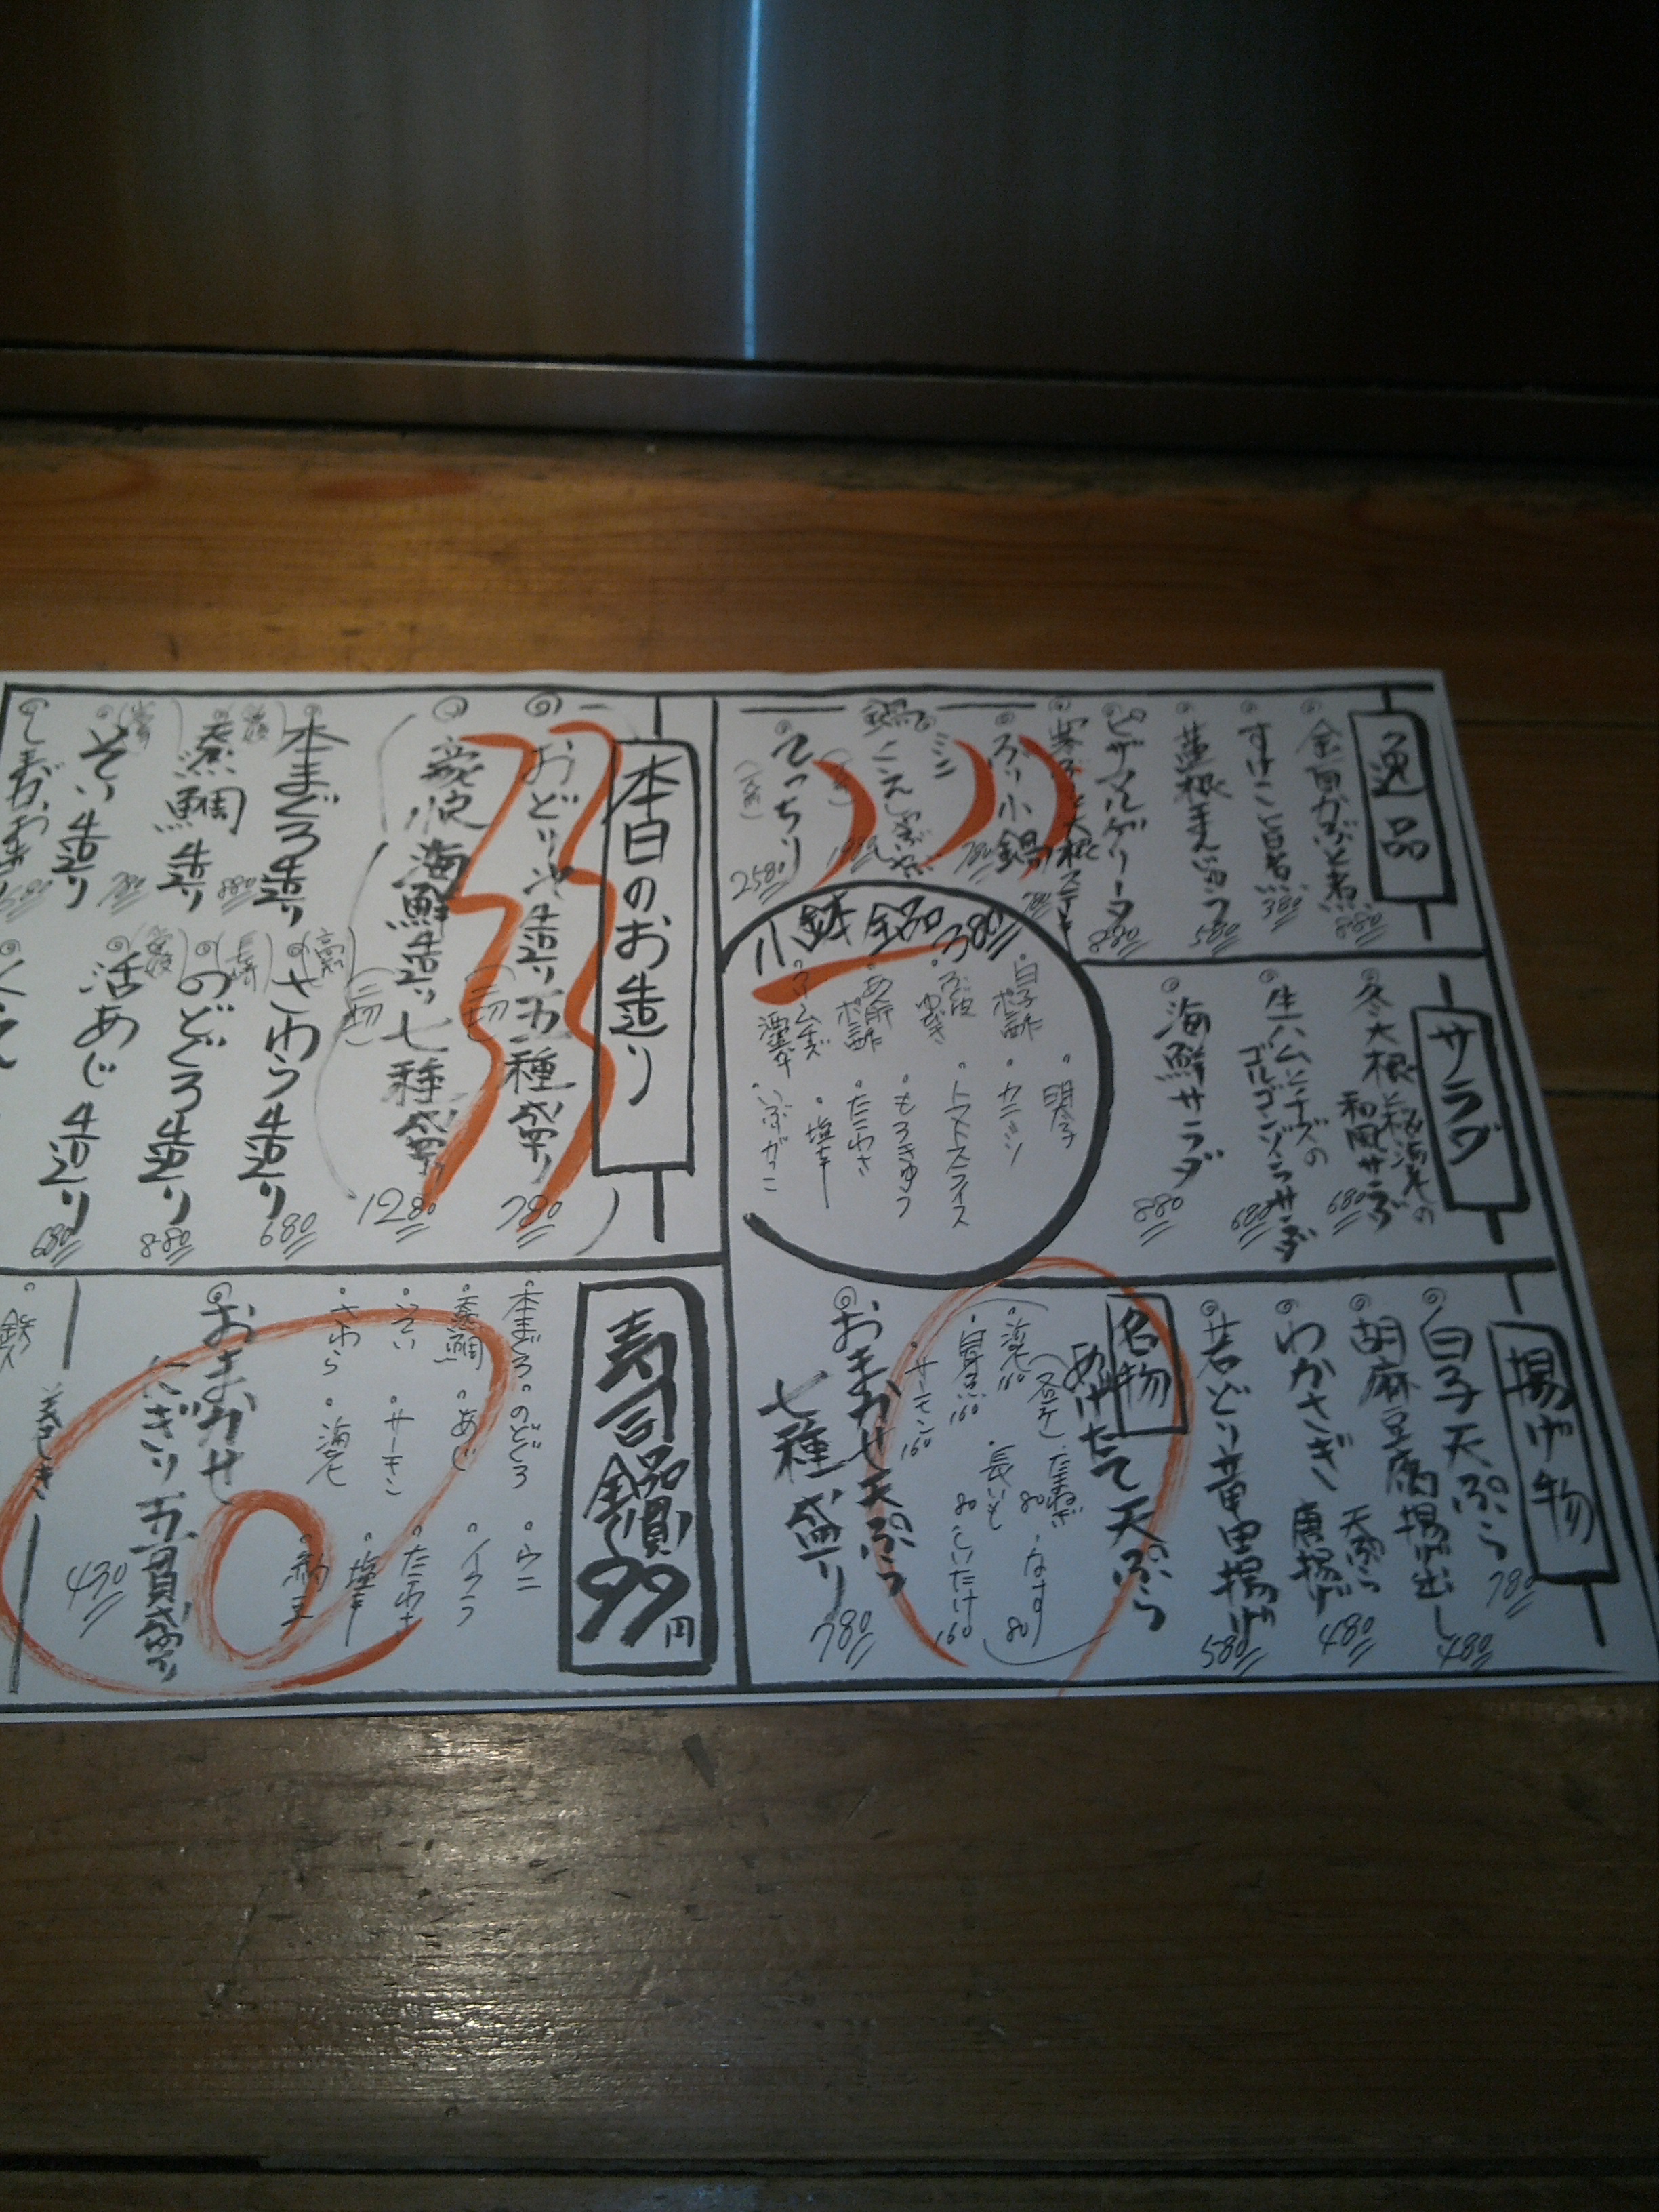 逸品
金目かぶと煮 880
すけこ旨煮 380
蓮根まんじゅう 580
ピザマルゲリータ 880
寒ぶりと大根ステーキ 780
ぶり小鍋 780
鍋
てっちり 2580
サラダ
冬大根と桜海老の
和風サラダ 680
生ハムとチーズの
ゴルゴンゾーラサラダ 680
海鮮サラダ 880
小鉢 380
白子ポン酢
ぶり皮ゆびき
あん肝ポン酢
クリームチーズ酒盗
明太子
カニミソ
トマトスライス
もろきゅう
たこわさ
塩辛
いぶりがっこ
揚げ物
白子天ぷら 780
胡麻豆腐揚げ出し 480
わかさぎ 天ぷら 唐揚げ 480
若どり竜田揚げ 580
名物
あげたて天ぷら
海老 110
白身魚 160
サーモン 160
玉ねぎ 80
長いも 80
なす 80
しいたけ 160
おまかせ天ぷら
七種盛り 780
本日のお造り
おどり火造り五種盛り 780
海鮮造り七種盛り 1280
本まぐろ造り 880
真鯛造り 780
そい造り
さわら造り 680
のどぐろ造り 880
活あじ造り 680
寿司 99円
本まぐろ
のどぐろ
ウニ
真鯛
あじ
イクラ
そい
サーモン
たこわさ
さわら
海老
塩辛
納豆
おまかせ
にぎり五貫盛り 490